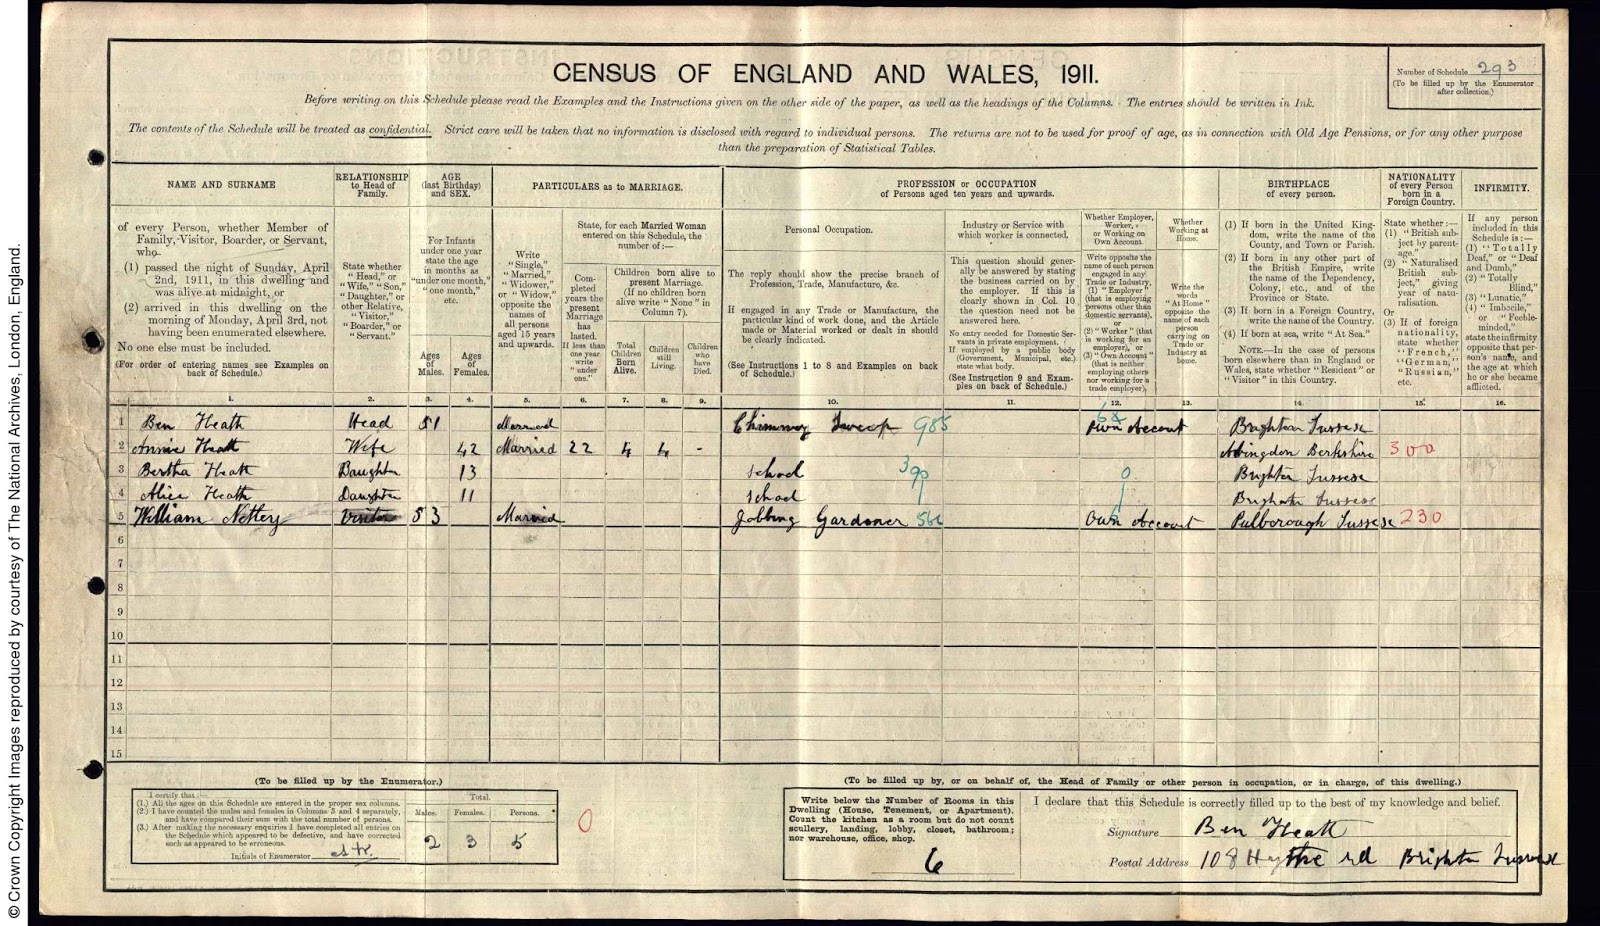 © Crown Copyright Images reproduced by courtesy of The National Archives, London, England.
CENSUS OF ENGLAND AND WALES, 1911.
Number of Schedule 293
(To be filled up by the Enumerator
after collection.)
Before writing on this Schedule please read the Examples and the Instructions given on the other side of the paper, as well as the headings of the Columns. The entries should be written in Ink.
The contents of the Schedule will be treated as confidential. Strict care will be taken that no information is disclosed with regard to individual persons. The returns are not to be used for proof of age, as in connection with Old Age Pensions, or for any other purpose
than the preparation of Statistical Tables.
NAME AND SURNAME
of every Person, whether Member of
Family, Visitor, Boarder, or Servant,
who
(1) passed the night of Sunday, April
2nd, 1911, in this dwelling and
was alive at midnight, or
(2) arrived in this dwelling on the
morning of Monday, April 3rd, not
having been enumerated elsewhere.
No one else must be included.
(For order of entering names see Examples on
back of Schedule.)
RELATIONSHIP
to Head of
Family.
State whether
"Head," or
"Wife," "Son,"
"Daughter," or
other Relative,
"Visitor,"
"Boarder," or
"Servant."
AGE
(last Birthday)
and SEX.
For Infants
under one year
state the age
in months as
"under one month,"
"one month,"
etc.
Ages
of
Males.
Ages
of
Females.
PARTICULARS as to MARRIAGE.
Write
"Single,"
"Married,"
"Widower,"
or "Widow,"
opposite the
names of
all persons
aged 15 years
and upwards.
State, for each Married Woman
entered on this Schedule, the
number of:—
Completed
years the
present
Marriage
has
lasted.
If less than
one year
write
"under
one."
Children born alive to
present Marriage.
(If no children born
alive write "None" in
Column 7).
Total
Children
Born
Alive.
Children
still
Living.
Children
who
have
Died.
PROFESSION or OCCUPATION
of Persons aged ten years and upwards.
Personal Occupation.
The reply should show the precise branch of
Profession, Trade, Manufacture, &c.
If engaged in any Trade or Manufacture, the
particular kind of work done, and the Article
made or Material worked or dealt in should
be clearly indicated.
(See Instructions 1 to 8 and Examples on back
of Schedule.)
Industry or Service with
which worker is connected.
This question should gener-
ally be answered by stating
the business carried on by
the employer. If this is
clearly shown in Col. 10
the question need not be
answered here.
No entry needed for Domestic Ser-
vants in private employment.
If employed by a public body
(Government, Municipal, etc.)
state what body.
(See Instruction 9 and Exam-
ples on back of Schedule.)
Whether Employer,
Worker,
or Working on
Own Account.
Write opposite the
name of each person
engaged in any
Trade or Industry,
(1) "Employer"
(that is employing
persons other than
domestic servants),
or
(2) "Worker" (that
is working for an
employer), or
(3) "Own Account"
(that is neither
employing others
nor working for a
trade employer).
Whether
Working at
Home.
Write the
words
"At Home"
opposite the
name of each
person
carrying on
Trade or
Industry at
home.
BIRTHPLACE
of every person.
(1) If born in the United King-
dom, write the name of the
County, and Town or Parish.
(2) If born in any other part of
the British Empire, write
the name of the Dependency,
Colony, etc., and of the
Province or State.
(3) If born in a Foreign Country,
write the name of the Country.
(4) If born at sea, write "At Sea."
NOTE.—In the case of persons
born elsewhere than in England or
Wales, state whether "Resident" or
"Visitor" in this Country.
NATIONALITY
of every Person
born in a
Foreign Country.
State whether:—
(1) "British sub-
ject by parent-
age."
(2) "Naturalised
British sub-
ject," giving
year of natu-
ralisation.
Or
(3) If of foreign
nationality,
state whether
"French,"
"German,"
"Russian,"
etc.
INFIRMITY.
If any person
included in this
Schedule is:—
(1) "Totally
Deaf," or "Deaf
and Dumb,"
(2) "Totally
Blind,"
(3) "Lunatic,"
(4) "Imbecile,"
or "Feeble-
minded,"
state the infirmity
opposite that per-
son's name, and
the age at which
he or she became
afflicted.
1. 2. 3. 4. 5. 6. 7. 8. 9. 10. 11. 12. 13. 14. 15. 16.
1 Ben Heath Head 51 Married Chimney Sweep 985 Own Account Brighton Sussex
2 Annie Heath Wife 42 Married 22 4 4 - Abingdon Berkshire 300
3 Bertha Heath Daughter 13 School 390 0 Brighton Sussex
4 Alice Heath Daughter 11 School Brighton Sussex
5 William Nettey Visitor 53 Married Jobbing Gardener Own Account Pulborough Sussex 230
6
7
8
9
10
11
12
13
14
15
(To be filled up by the Enumerator.)
I certify that:—
(1.) All the ages on this Schedule are entered in the proper sex columns.
(2.) I have counted the males and females in Columns 3 and 4 separately,
and have compared their sum with the total number of persons.
(3.) After making the necessary enquiries I have completed all entries on
the Schedule which appeared to be defective, and have corrected
such as appeared to be erroneous.
Initials of Enumerator
Total.
Males. Females. Persons.
2 3 5
0
(To be filled up by, or on behalf of, the Head of Family or other person in occupation, or in charge, of this dwelling.)
Write below the Number of Rooms in this
Dwelling (House, Tenement, or Apartment).
Count the kitchen as a room but do not count
scullery, landing, lobby, closet, bathroom;
nor warehouse, office, shop.
6
I declare that this Schedule is correctly filled up to the best of my knowledge and belief.
Signature Ben Heath
Postal Address 108 Hythe rd Brighton Sussex